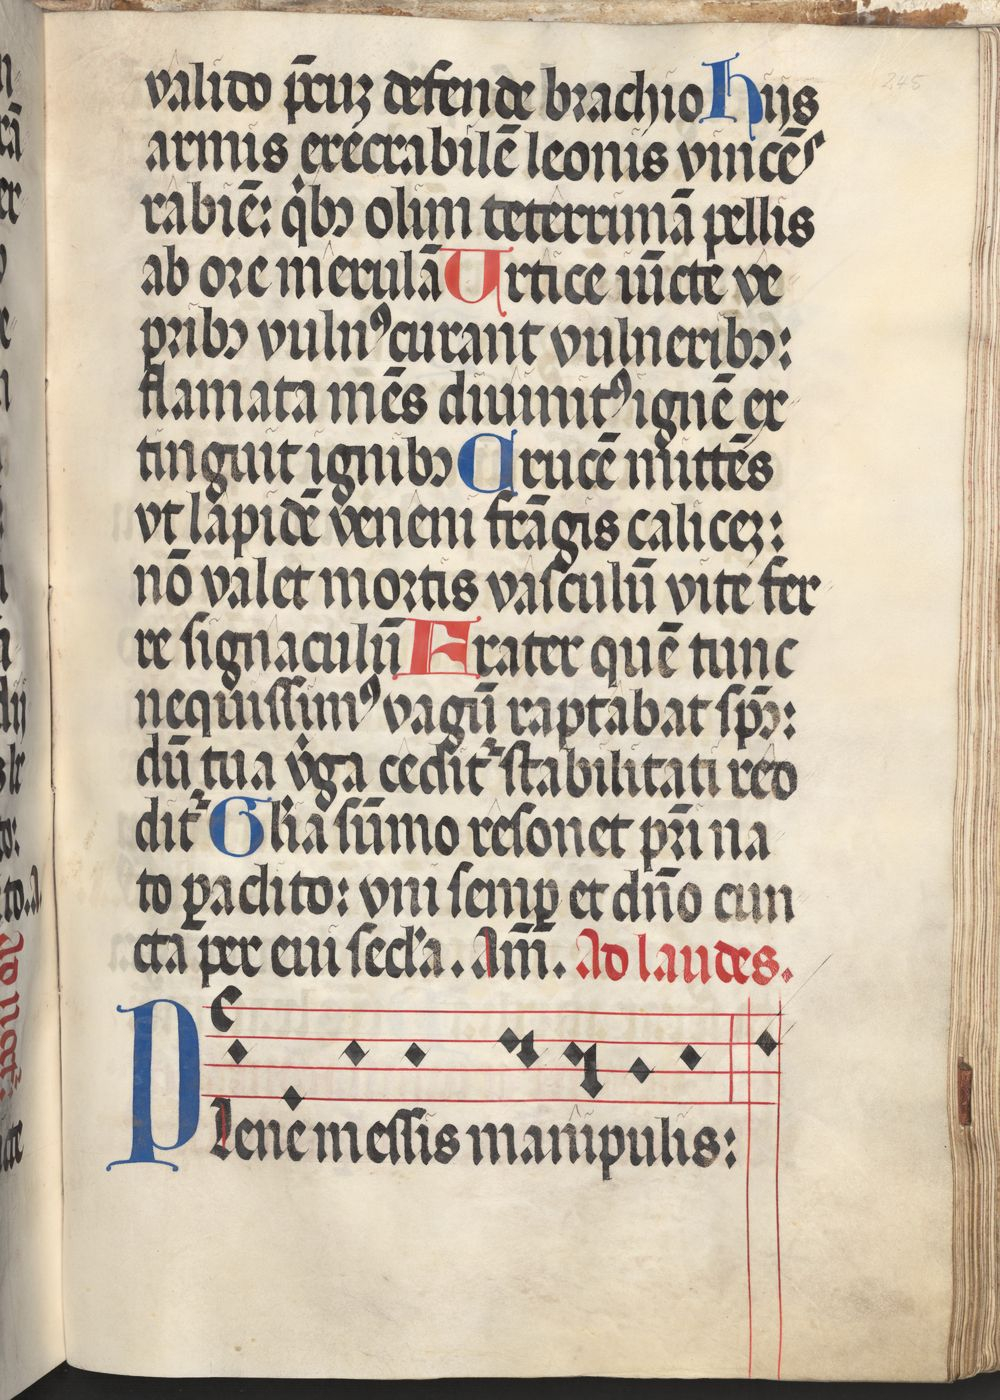 valido p̄cuꝫ defende brachio Hijs
armis execrabilē leonis vincēs
rabiē: qͥbꝯ olim teterrimā pellis
ab ore merulā Urtice iūcte ve
pribꝯ vulnꝰ curant vulneribꝯ:
flamata mēs diuinitꝰ ignē ex
tinguit ignibꝯ Crucē mittēs
vt lapidē veneni frāgis caliceꝫ:
nō valet mortis vasculū vite fer
re signaculū Frater quē tunc
nequissimꝰ vagū raptabat sp̄ꝯ:
dū tua vͥga cedit᷑ stabilitati red
dit᷑ Gl̄ia sūmo resonet pr̄i na
to ꝑaclito: vni semꝑ et dn̄o cun
cta per eui secl̓a. Am̄. Ad laudes.
Plene messis manipulis:
245